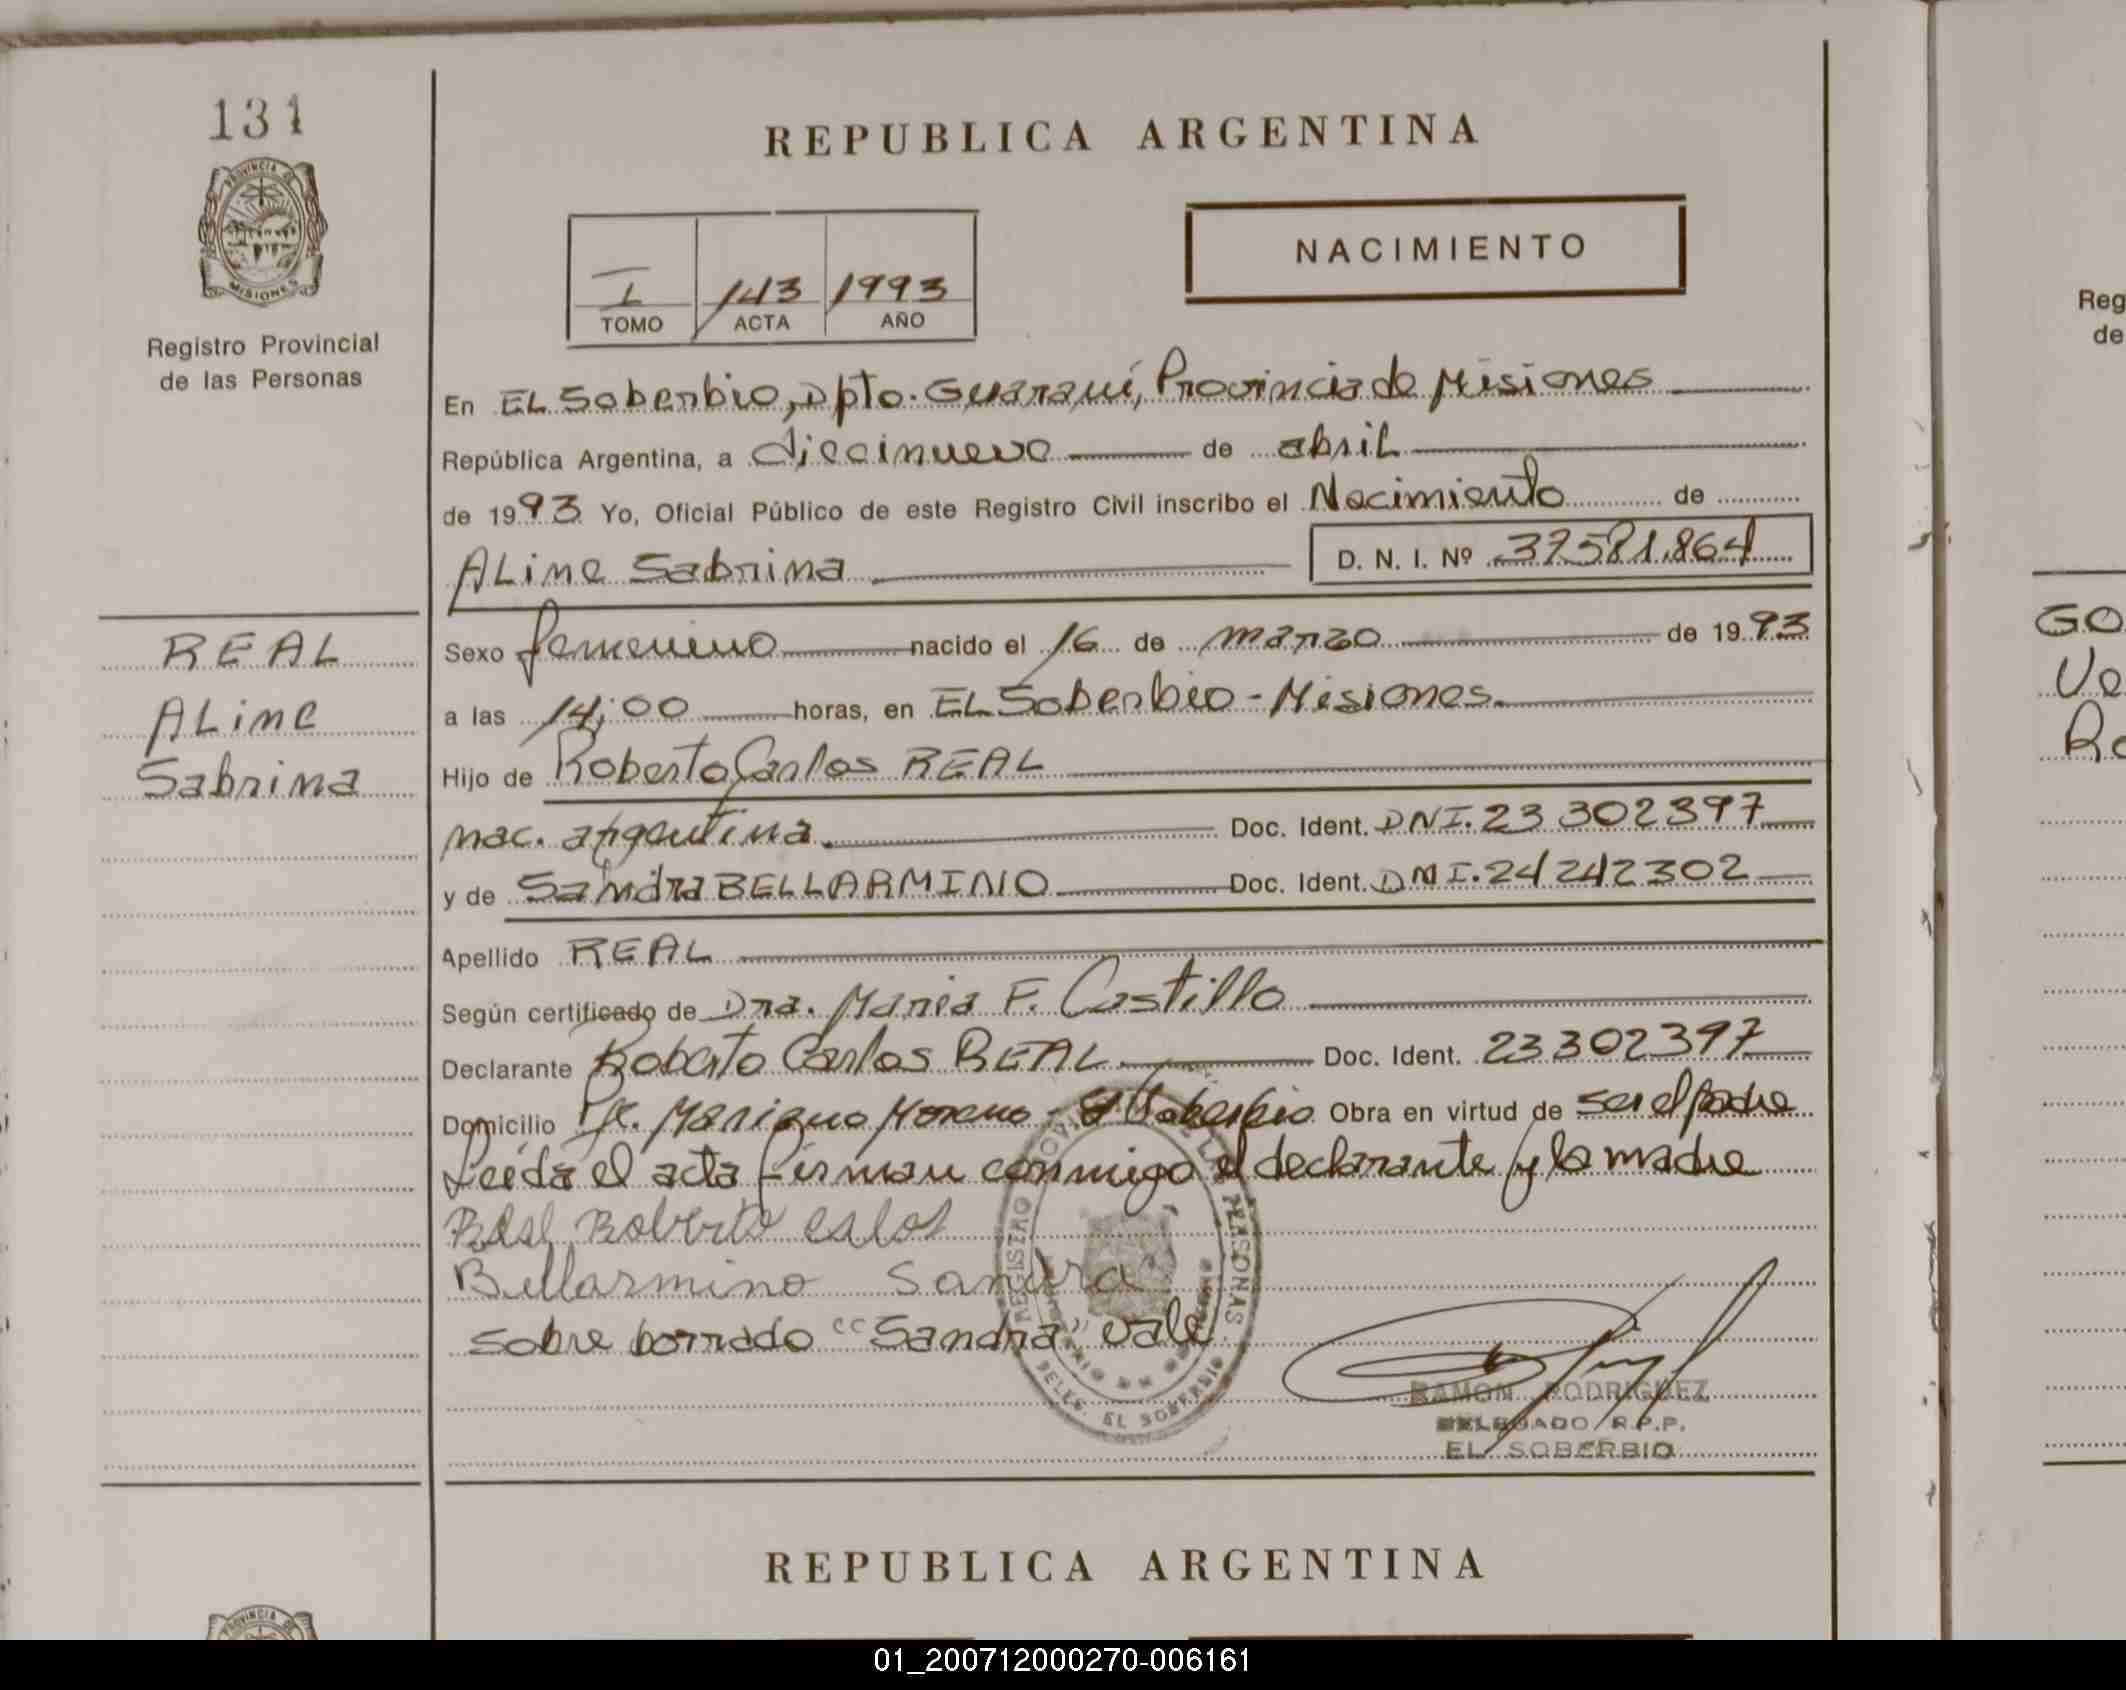 131
PROVINCIA DE
MISIONES
Registro Provincial
de las Personas
REAL
ALine
Sabrina
REPUBLICA ARGENTINA
NACIMIENTO
I 143 1993
TOMO ACTA AÑO
En EL Soberbio, Dpto. Guaraní, Provincia de Misiones
República Argentina, a diecinueve de abril
de 1993 Yo, Oficial Público de este Registro Civil inscribo el Nacimiento de
ALine Sabrina D. N. I. Nº 37581.864
Sexo femenino nacido el 16 de marzo de 1993
a las 14;00 horas, en EL Soberbio - Misiones.
Hijo de Roberto Carlos REAL
nac. argentina. Doc. Ident. DNI. 23 302397
y de Sandra BELLARMINO Doc. Ident. DNI. 24242302
Apellido REAL
Según certificado de Dra. Maria F. Castillo
Declarante Roberto Carlos REAL Doc. Ident. 23302397
Domicilio Mariano Moreno - El Soberbio Obra en virtud de ser el padre
Leída el acta firman conmigo el declarante y la madre
Real Roberto
Bellarmino Sandra
sobre borrado "Sandra" vale
REGISTRO PROVINCIAL DE LAS PERSONAS
DELEG. EL SOBERBIO
RAMON RODRIGUEZ
DELEGADO R.P.P.
EL SOBERBIO
REPUBLICA ARGENTINA
PROVINCIA
Reg
de
GO
Ve
Ro
01_200712000270-006161